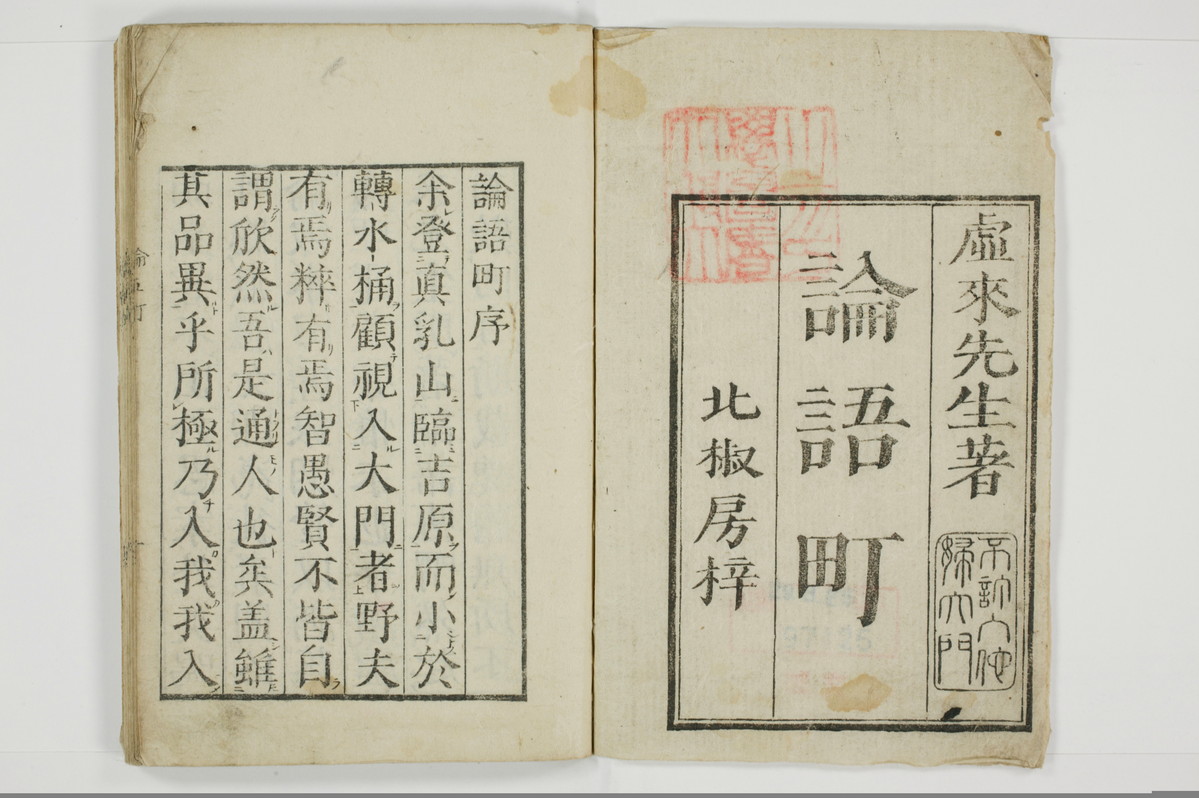 虛來先生著
論語町
北椒房梓
論語町序
余登真乳山臨吉原而小於
轉水桶顧視入大門者野夫
有焉粹有焉智愚賢不皆自
謂欣然吾是通人也矣盖雖
其品異乎所極乃入我我入